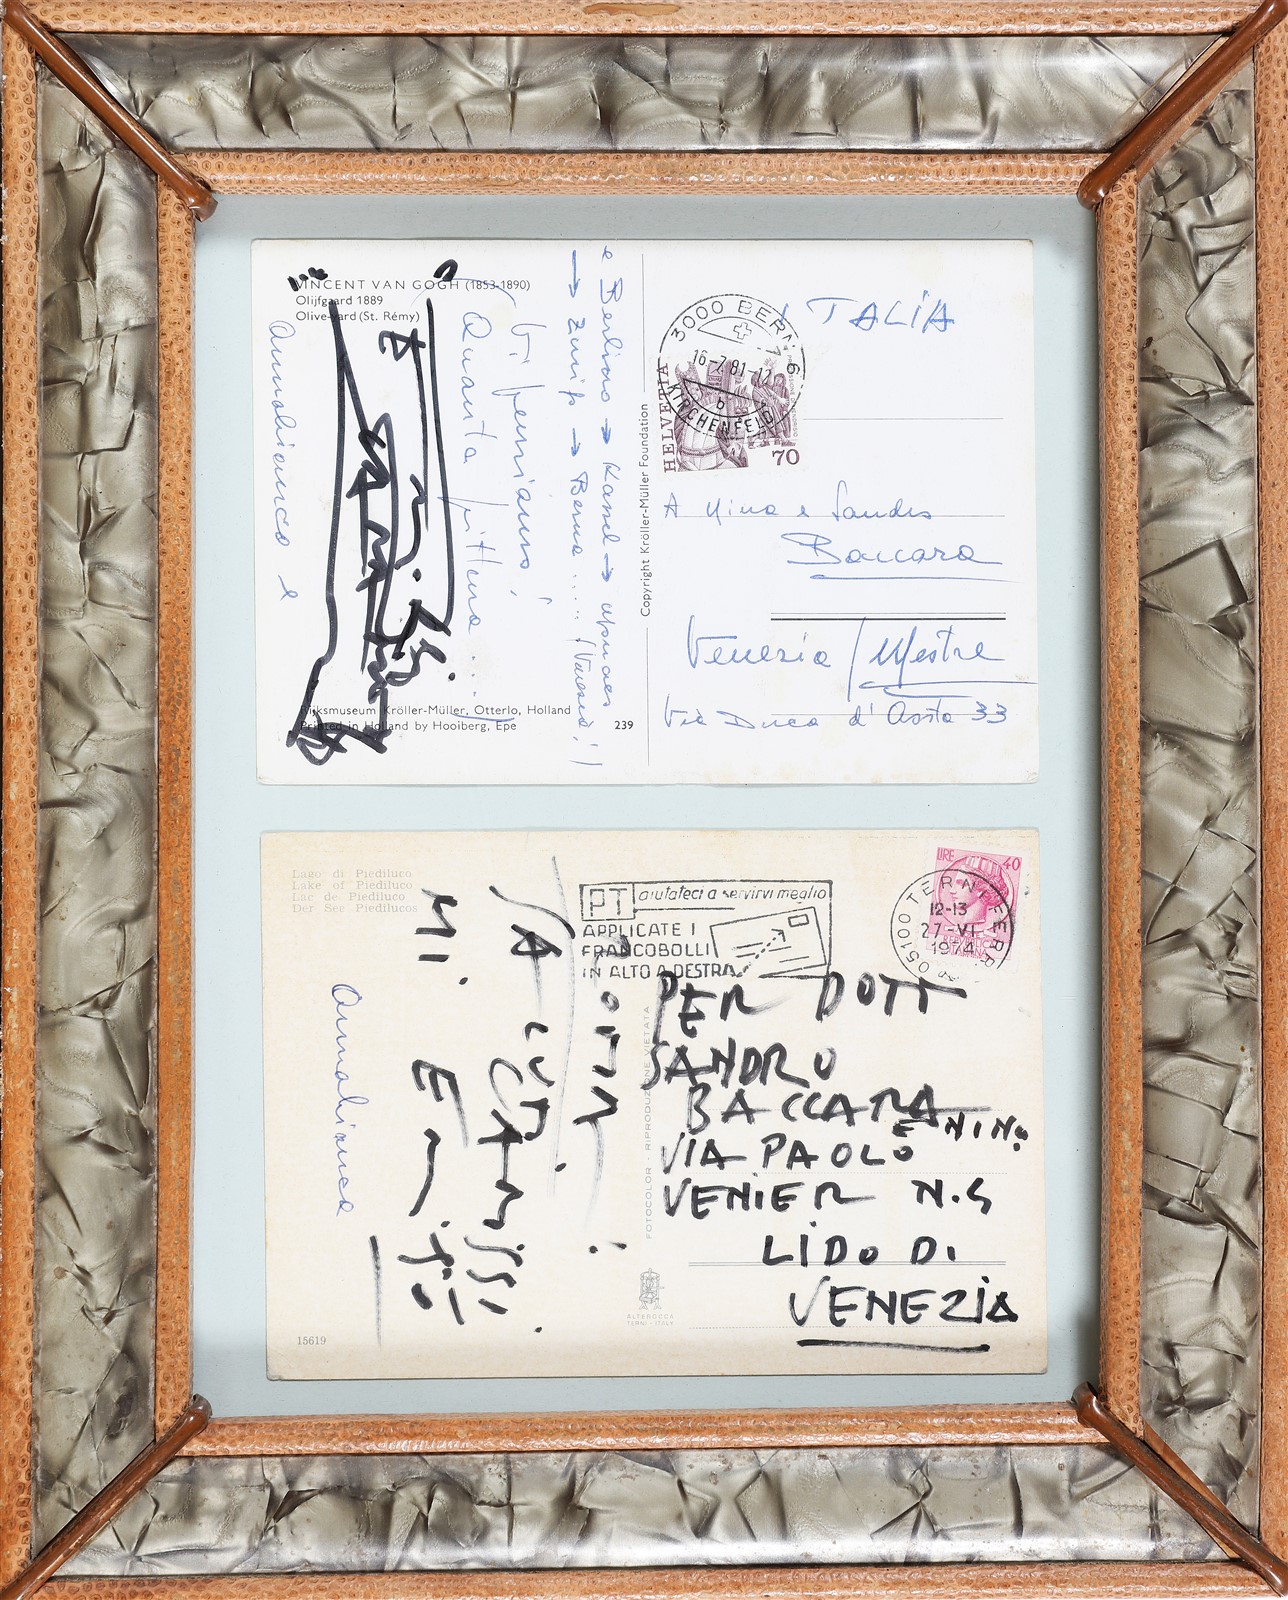 VINCENT VAN GOGH (1853-1890)
Olijfgaard 1889
Olive-yard (St. Rémy)
e Berlino → Kassel →
→ Zurigo → Berna .... (Varese!)
Vi pensiamo,
Quanta pittura ....
Annabianca e
Rijksmuseum Kröller-Müller, Otterlo, Holland
Printed in Holland by Hooiberg, Epe
239
Copyright Kröller-Müller Foundation
3000 BERN 6
16-7.81-12
b
KIRCHENFELD
HELVETIA
70
ITALIA
A Nina e Sandro
Baccara
Venezia / Mestre
Via Duca d'Aosta 33
Lago di Piediluco
Lake of Piediluco
Lac de Piediluco
Der See Piedilucos
PT aiutateci a servirvi meglio
APPLICATE I
FRANCOBOLLI
IN ALTO A DESTRA
LIRE 40
05100 TERNI FERR.
12-13
27-VI
1974
ROMA
Annabianca
15619
FOTOCOLOR - RIPRODUZIONE VIETATA
ALTEROCCA
TERNI - ITALY
PER DOTT
SANDRO
BACCARA
E NINA
VIA PAOLO
VENIER N.5
LIDO DI
VENEZIA